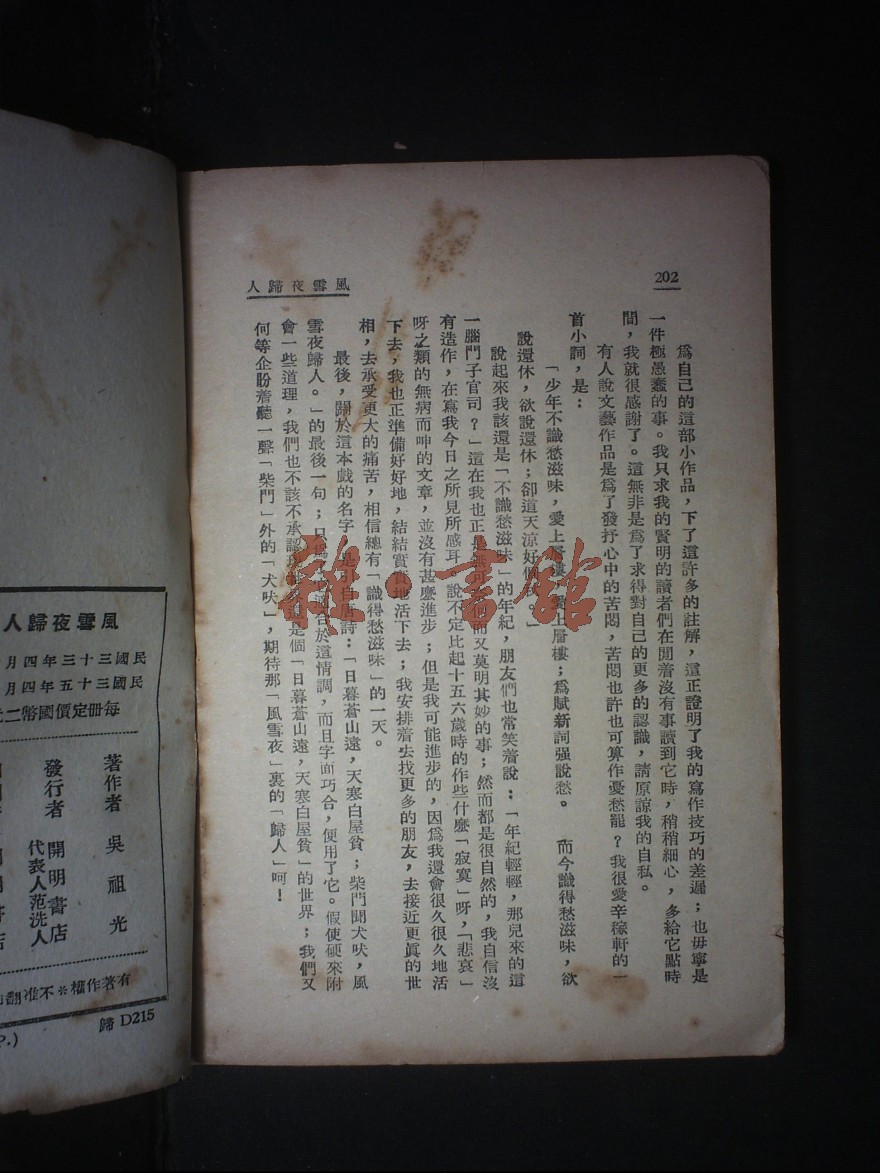 202
風雪夜歸人
爲自己的這部小作品，下了這許多的註解，這正證明了我的寫作技巧的差漏；也毋寧是
一件極愚蠢的事。我只求我的賢明的讀者們在閒着沒有事讀到它時，稍稍細心，多給它點時
間，我就很感謝了。這無非是爲了求得對自己的更多的認識，請原諒我的自私。
有人說文藝作品是爲了發抒心中的苦悶，苦悶也許也可算作憂愁罷？我很愛辛稼軒的一
首小詞，是：
「少年不識愁滋味，愛上層樓，愛上層樓；爲賦新詞强說愁。　而今識得愁滋味，欲
說還休，欲說還休；卻道天涼好個秋。」
說起來我該還是「不識愁滋味」的年紀，朋友們也常笑着說：「年紀輕輕，那兒來的這
一腦門子官司？」這在我也正是無可奈何而又莫明其妙的事；然而都是很自然的，我自信沒
有造作，在寫我今日之所見所感耳。說不定比起十五六歲時的作些什麼「寂寞」呀，「悲哀」
呀之類的無病而呻的文章，並沒有甚麼進步；但是我可能進步的，因爲我還會很久很久地活
下去，我也正準備好好地，結結實實地活下去；我安排着去找更多的朋友，去接近更眞的世
相，去承受更大的痛苦，相信總有「識得愁滋味」的一天。
最後，關於這本戲的名字，是引自唐詩：「日暮蒼山遠，天寒白屋貧；柴門聞犬吠，風
雪夜歸人。」的最後一句；只爲適合於這情調，而且字面巧合，便用了它。假使硬來附
會一些道理，我們也不該不承認是個「日暮蒼山遠，天寒白屋貧」的世界；我們又
何等企盼着聽一聲「柴門」外的「犬吠」，期待那「風雪夜」裏的「歸人」呵！
雜·書館
風雪夜歸人
民國三十三年四月
民國三十五年四月
每册定價國幣二
著作者　吳祖光
發行者　開明書店
代表人范洗人
有著作權※不准翻
歸 D215
P.)